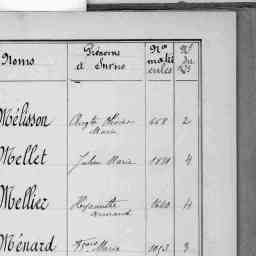 Noms Prénoms et Surno Nos matri cules Nos du
Mélisson Augte Olivier Marie 668 2
Mellet Julien Marie 1830 4
Mellier Hyacinthe Armand 1660 4
Ménard Fçois Marie 1013 3